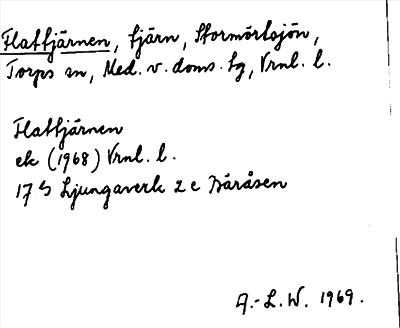 Flattjärnen, tjärn, Stormörtsjön,
Torps sn, Med. v. doms. tg, Vrnl. l.
Flattjärnen
ek (1968) Vrnl. l.
17 G Ljungaverk 2 c Båråsen
A.-L. W. 1969.